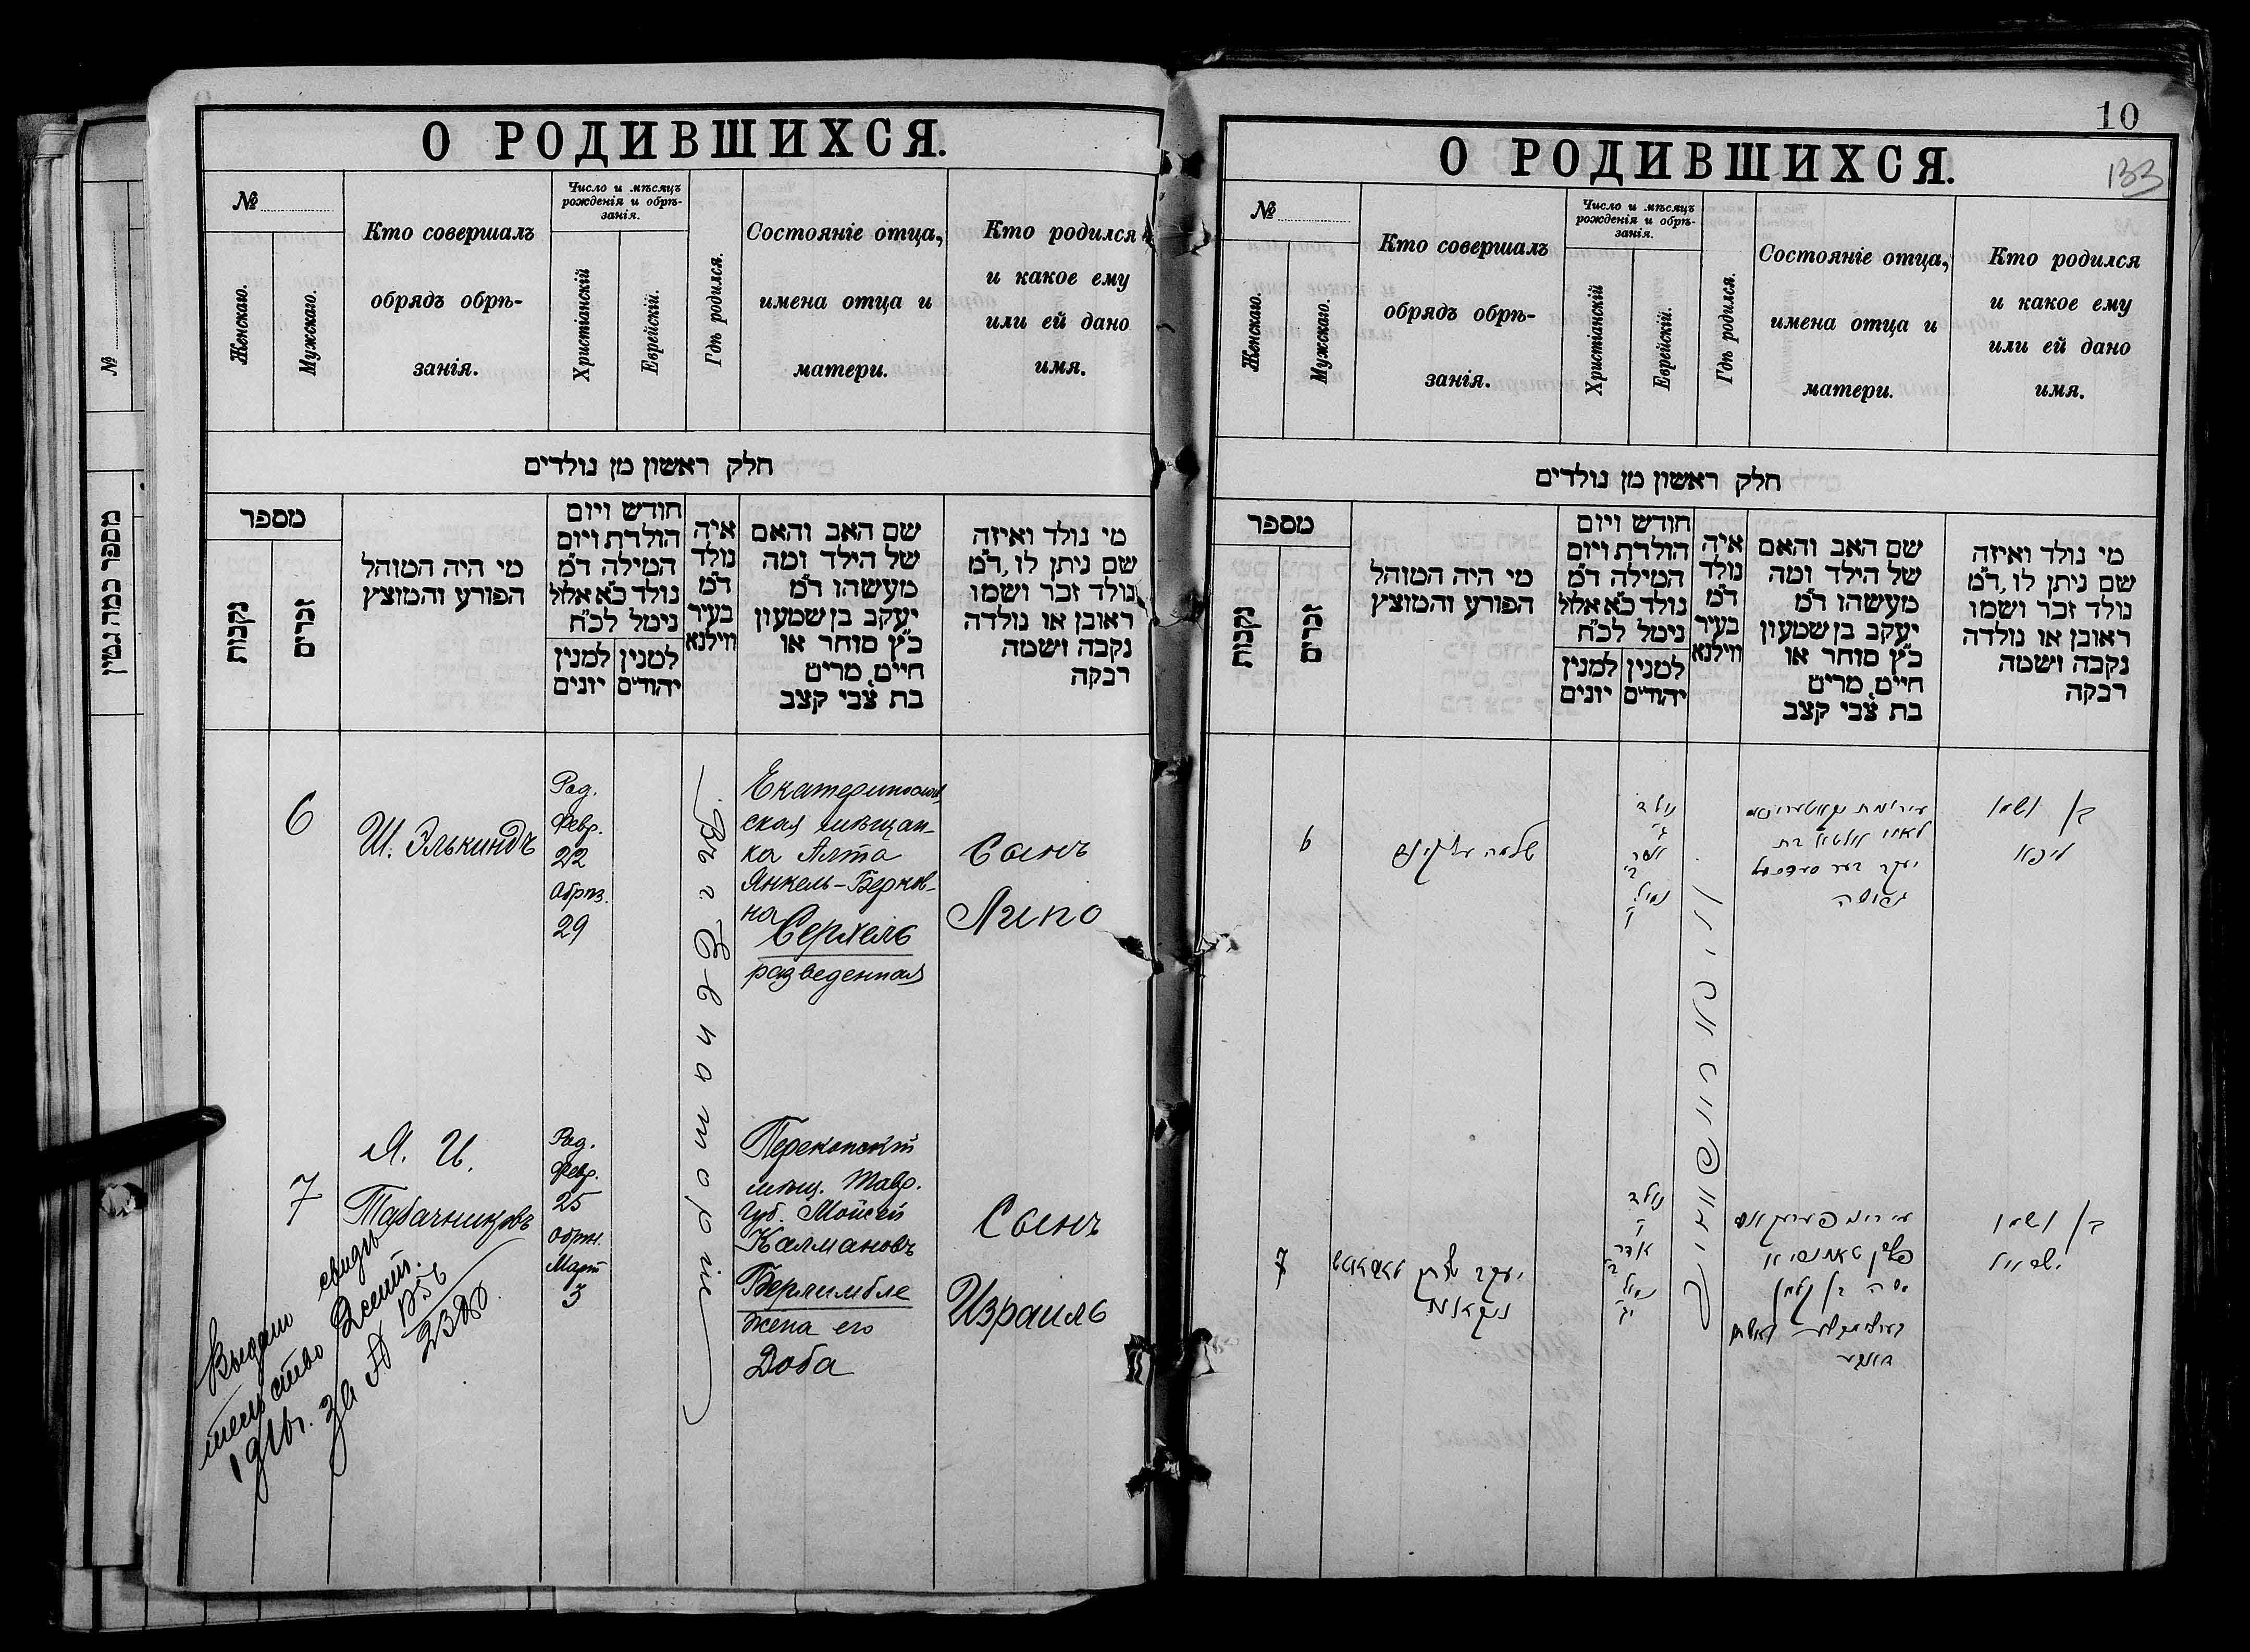 О РОДИВШИХСЯ.
№
Женскаго.
Мужскаго.
Кто совершалъ
обрядъ обрѣ-
занія.
Число и мѣсяцъ
рожденія и обрѣ-
занія.
Христіанскій
Еврейскій.
Гдѣ родился.
Состояніе отца,
имена отца и
матери.
Кто родился
и какое ему
или ей дано
имя.
חלק ראשון מן נולדים
מספר
נקבות
זכרים
מי היה המוהל
הפורע והמוצץ
חודש ויום
הולדת ויום
המילה ד״מ
נולד כ״א אלול
נימל לכ״ח
למנין
יונים
למנין
יהודים
איה
נולד
ד״מ
בעיר
ווילנא
שם האב והאם
של הילד ומה
מעשהו ד״מ
יעקב בן שמעון
כ״ץ סוחר או
חייט, מרים
בת צבי קצב
מי נולד ואיזה
שם ניתן לו, ד״מ
נולד זכר ושמו
ראובן או נולדה
נקבה ושמה
רבקה
6
Ш. Элькиндъ
Род.
Февр.
22
Обрѣз.
29
Въ г. Евпаторіи
Екатеринослав
ская мѣщан-
ка Алта
Янкель-Берков-
на
Серхель
разведенная
Сынъ
Липо
7
Я. И.
Табачниковъ
Род.
Февр.
25
Обрѣз.
Мартъ
3
Перекопскій
мѣщ. Тавр.
губ. Мойсей
Калмановъ
Берлимбле
жена его
Доба
Сынъ
Израиль
Выдано свидѣ
тельство
за №
מספר כמה גטין
№
10
133
О РОДИВШИХСЯ.
№
Женскаго.
Мужскаго.
Кто совершалъ
обрядъ обрѣ-
занія.
Число и мѣсяцъ
рожденія и обрѣ-
занія.
Христіанскій
Еврейскій.
Гдѣ родился.
Состояніе отца,
имена отца и
матери.
Кто родился
и какое ему
или ей дано
имя.
חלק ראשון מן נולדים
מספר
נקבות
זכרים
מי היה המוהל
הפורע והמוצץ
חודש ויום
הולדת ויום
המילה ד״מ
נולד כ״א אלול
נימל לכ״ח
למנין
יונים
למנין
יהודים
איה
נולד
ד״מ
בעיר
ווילנא
שם האב והאם
של הילד ומה
מעשהו ד״מ
יעקב בן שמעון
כ״ץ סוחר או
חייט, מרים
בת צבי קצב
מי נולד ואיזה
שם ניתן לו, ד״מ
נולד זכר ושמו
ראובן או נולדה
נקבה ושמה
רבקה
6
שלמה עלקינד
נולד
אדר
נימול
גרושה
בן ושמו
ליפא
7
יעקב
נולד
אדר
נימול
משה בן קלמן
בן ושמו
ישראל